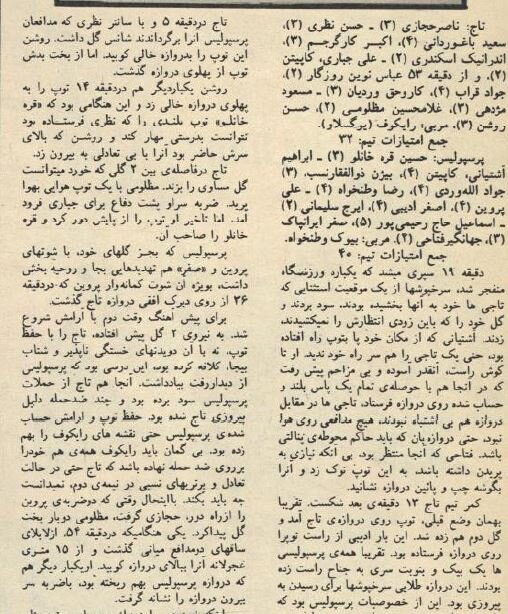 تاج: ناصرحجازی (۳) ـ حسن نظری (۳)،
سعید باغـوردانی (۴)، اکبـر کارگرجـم (۳)،
اندرانیک اسکندری (۲) ـ علی جباری، کاپیتن
(۲)، و از دقیقه ۵۳ عباس نوین روزگار (۲)،
جواد قراب (۴)، کاروحق وردیان (۳) ـ مسعود
مژدهی (۳)، غلامحسین مظلومـی (۲)، حسـن
روشن (۳). مربی: رایکوف (یرگسلاو).
جمع امتیازات تیم: ۳۲
پرسپولیس: حسین قره خانلو (۳) ـ ابراهیم
آشتیانی، کاپیتن (۴)، بیژن ذوالفقارنسب، (۳)
جواد الله‌وردی (۴)، رضا وطنخواه (۴) ـ علی
پروین (۴)، اصغر ادیبی (۴)، ایرج سلیمانی (۲)
ـ اسماعیل حاج رحیمی‌پور (۵)، سفر ایرانپاک
(۳)، جهانگیرفتاحی (۲). مربی: بیوک وطنخواه.
جمع امتیازات تیم: ۴۰
دقیقه ۱۹ سپری میشد که یکباره ورزشگاه
منفجر شد، سرخپوشها از یک موقعیت استثنایی که
تاجی ها خود به آنها بخشیده بودند، سود بردند و
گل خود را که باین زودی انتظارش را نمیکشیدند،
زدند. آشتیانی که از مکان خود با بتوپ راه افتاده
بود، حتی یک تاجی را هم سر راه خود ندید. او تا
کوش راست، آنقدر آسوده و بی مزاحم پیش رفت
که در آنجا هم با حوصله‌ی تمام یک پاس بلند و
حساب شده روی دروازه فرستاد، تاجی ها در مقابل
دروازه هم بی اشتباه نبودند، هیچ مدافعی روی هوا
نبود، حتی دروازه‌بان که باید حاکم محوطه‌ی پنالتی
باشد. فتاحی که آنجا منتظر بود، بی آنکه نیازی به
پریدن داشته باشد، به این توپ نوک زد و آنرا
بگوشه چپ و پائین دروازه نشانید.
کمر تیم تاج ۱۲ دقیقه‌ی بعد شکست. تقریبا
بهمان وضع قبلی، توپ روی دروازه‌ی تاج آمد و
گل دوم هم زده شد. این بار ادیبی از راست توپرا
روی دروازه فرستاده بود. تقریبا همه‌ی پرسپولیسی
ها یک بیک و بنوبت سری به جناح راست زده
بودند. این دروازه طلایی سرخپوشها برای رسیدن به
پیروزی بود. این از خصوصیات پرسپولیس بود که
تاج دردقیقه ۵ و با سانتر نظری که مدافعان
پرسپولیس آنرا برگرداندند شانس گل داشت. روشن
این توپ را بدروازه خالی کوبید. اما از بخت بدش
توپ از پهلوی دروازه گذشت.
روشن یکباردیگر هم دردقیقه ۱۴ توپ را به
پهلوی دروازه خالی زد و این هنگامی بود که «قره
خانلو» توپ بلندی را که نظری فرستـاده بود
نتوانست بدرستی مهار کند و روشـن که بالای
سرش حاضر بود آنرا با بی تعادلی به بیرون زد.
تاج درفاصله‌ی بین ۲ گلی که خورد میتوانست
گل مساوی را بزند. مظلومی با یک توپ هوایی بهوا
پرید. ضربه سراو پشت دفاع برای جباری فرود
آمد، اما تاخیر او توپ را از پایش دور کرد و قره
خانلو را صاحب آن.
پرسپولیس که بجـز گلهای خود، با شوتهای
پروین و «صفر» هم تهدیدهایی بجا و روحیه بخش
داشت، بویژه آن شوت کمانه‌وار پروین که دردقیقه
۲۶ از روی دیرک افقی دروازه تاج گذشت.
برای پیش آهنگ وقت دوم با آرامش شروع
شد. به نیروی ۲ گل پیش افتاده، تاج را با حفظ
توپ، نه با آن دویدنهای خستگی ناپذیر و شتاب
بیجا، کلافه کرده بود، این درسی بود که پرسپولیس
از دیداررفت بیادداشت. آنجا هم تاج از حملات
پرسپولیس سود برده بود و چند ضدحمله دلیل
پیروزی تاج شده بود. حفظ توپ و آرامش حساب
شده‌ی پرسپولیس حتی نقشه های رایکوف را بهم
زده بود. بی گمان باید رایکوف همه‌ی هم خودرا
برروی ضد حمله نهاده باشد که تاج حتی در حالت
تعادل و برتریهای نسبی در نیمه‌ی دوم، نمیدانست
چه باید بکند. بااینحال وقتی که دوضربه‌ی پروین
را ازراه دور، حجازی گرفت، مظلومی دوبار بخت
گل پیداکرد. یکی هنگامیکه دردقیقه ۵۴، ازلابلای
ساقهای دومدافع میانی گذشت و از ۱۵ متـری
عجولانه آنرا ببالای دروازه کوبید. آن‌یکبار دیگر هم
که دروازه پرسپولیس بهم ریخته بود، باضربه سر
بیرون دروازه را نشانه گرفت.